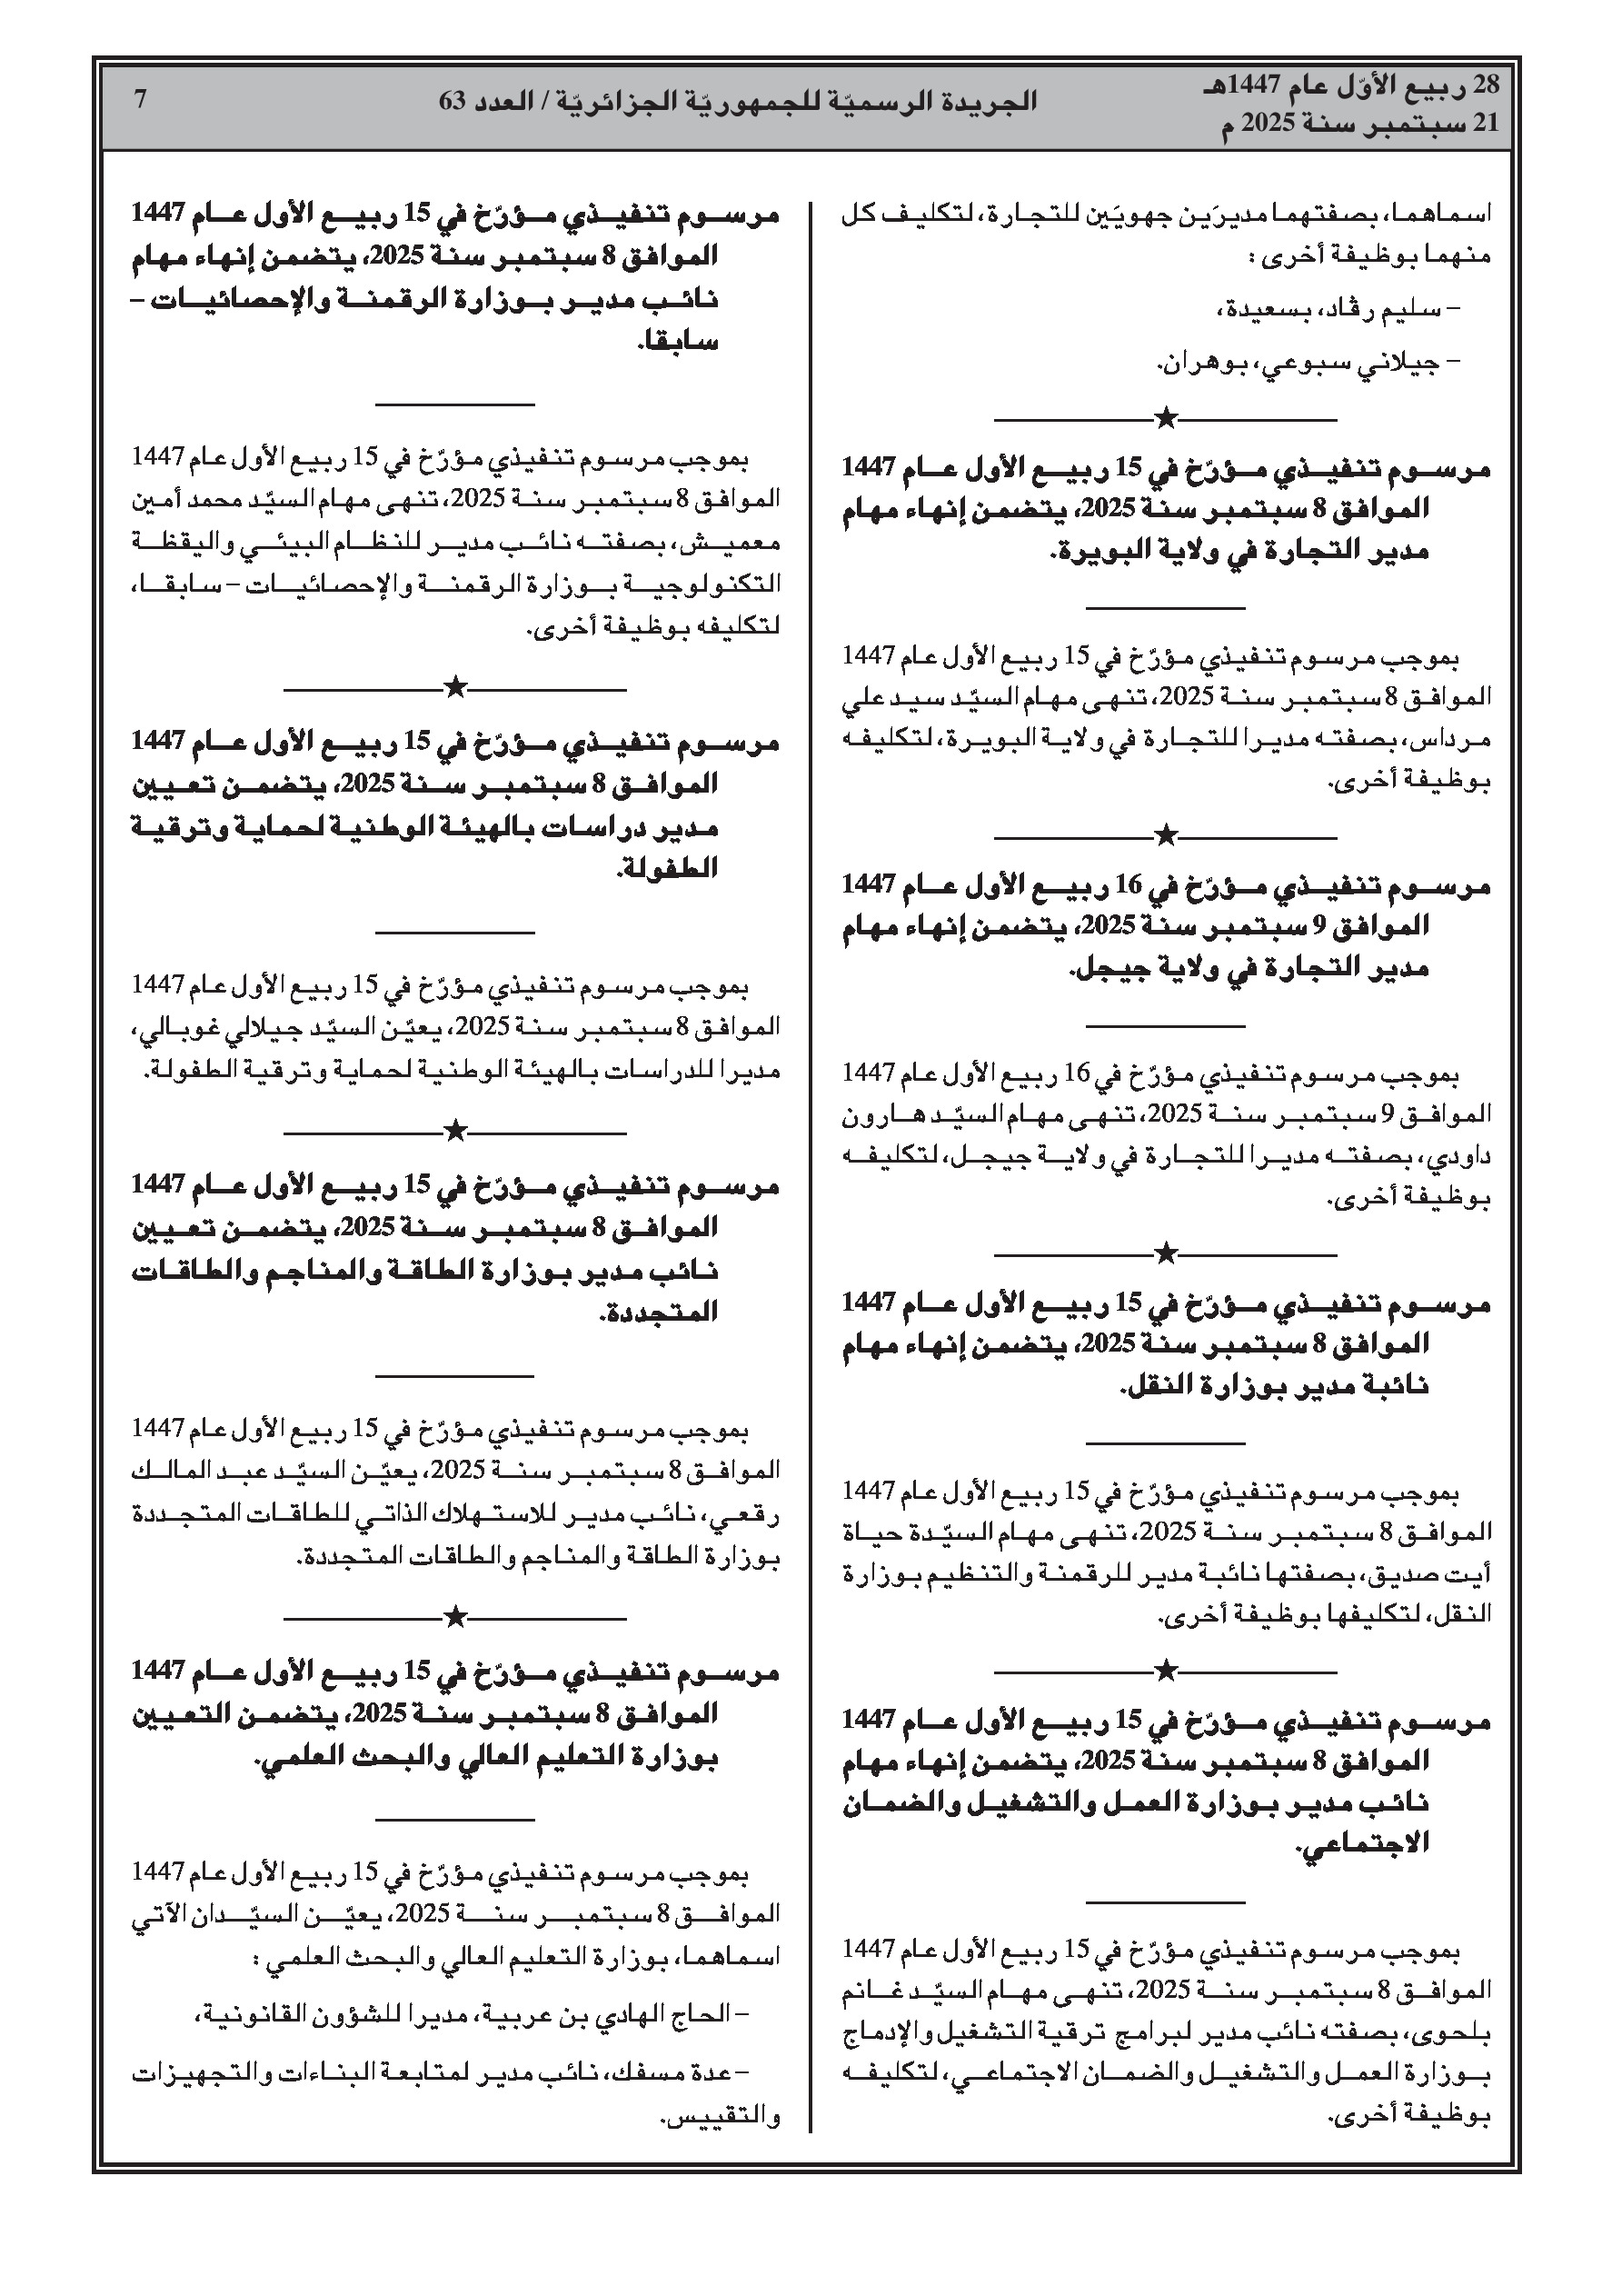 28 ربيع الأوّل عام 1447هـ
21 سبتمبر سنة 2025 م
الجريدة الرسميّة للجمهوريّة الجزائريّة / العدد 63
7
اسماهما، بصفتهما مديرَين جهويَين للتجارة، لتكليف كل
منهما بوظيفة أخرى :
– سليم رڤاد، بسعيدة،
– جيلاني سبوعي، بوهران.
مرسوم تنفيذي مؤرّخ في 15 ربيع الأول عام 1447
الموافق 8 سبتمبر سنة 2025، يتضمن إنهاء مهام
مدير التجارة في ولاية البويرة.
بموجب مرسوم تنفيذي مؤرّخ في 15 ربيع الأول عام 1447
الموافق 8 سبتمبر سنة 2025، تنهى مهام السيّد سيد علي
مرداس، بصفته مديرا للتجارة في ولاية البويرة، لتكليفه
بوظيفة أخرى.
مرسوم تنفيذي مؤرّخ في 16 ربيع الأول عام 1447
الموافق 9 سبتمبر سنة 2025، يتضمن إنهاء مهام
مدير التجارة في ولاية جيجل.
بموجب مرسوم تنفيذي مؤرّخ في 16 ربيع الأول عام 1447
الموافق 9 سبتمبر سنة 2025، تنهى مهام السيّد هارون
داودي، بصفته مديرا للتجارة في ولاية جيجل، لتكليفه
بوظيفة أخرى.
مرسوم تنفيذي مؤرّخ في 15 ربيع الأول عام 1447
الموافق 8 سبتمبر سنة 2025، يتضمن إنهاء مهام
نائبة مدير بوزارة النقل.
بموجب مرسوم تنفيذي مؤرّخ في 15 ربيع الأول عام 1447
الموافق 8 سبتمبر سنة 2025، تنهى مهام السيّدة حياة
أيت صديق، بصفتها نائبة مدير للرقمنة والتنظيم بوزارة
النقل، لتكليفها بوظيفة أخرى.
مرسوم تنفيذي مؤرّخ في 15 ربيع الأول عام 1447
الموافق 8 سبتمبر سنة 2025، يتضمن إنهاء مهام
نائب مدير بوزارة العمل والتشغيل والضمان
الاجتماعي.
بموجب مرسوم تنفيذي مؤرّخ في 15 ربيع الأول عام 1447
الموافق 8 سبتمبر سنة 2025، تنهى مهام السيّد غانم
بلحوى، بصفته نائب مدير لبرامج ترقية التشغيل والإدماج
بوزارة العمل والتشغيل والضمان الاجتماعي، لتكليفه
بوظيفة أخرى.
مرسوم تنفيذي مؤرّخ في 15 ربيع الأول عام 1447
الموافق 8 سبتمبر سنة 2025، يتضمن إنهاء مهام
نائب مدير بوزارة الرقمنة والإحصائيات –
سابقا.
بموجب مرسوم تنفيذي مؤرّخ في 15 ربيع الأول عام 1447
الموافق 8 سبتمبر سنة 2025، تنهى مهام السيّد محمد أمين
معميش، بصفته نائب مدير للنظام البيئي واليقظة
التكنولوجية بوزارة الرقمنة والإحصائيات – سابقا،
لتكليفه بوظيفة أخرى.
مرسوم تنفيذي مؤرّخ في 15 ربيع الأول عام 1447
الموافق 8 سبتمبر سنة 2025، يتضمن تعيين
مدير دراسات بالهيئة الوطنية لحماية وترقية
الطفولة.
بموجب مرسوم تنفيذي مؤرّخ في 15 ربيع الأول عام 1447
الموافق 8 سبتمبر سنة 2025، يعيّن السيّد جيلالي غوبالي،
مديرا للدراسات بالهيئة الوطنية لحماية وترقية الطفولة.
مرسوم تنفيذي مؤرّخ في 15 ربيع الأول عام 1447
الموافق 8 سبتمبر سنة 2025، يتضمن تعيين
نائب مدير بوزارة الطاقة والمناجم والطاقات
المتجددة.
بموجب مرسوم تنفيذي مؤرّخ في 15 ربيع الأول عام 1447
الموافق 8 سبتمبر سنة 2025، يعيّن السيّد عبد المالك
رقعي، نائب مدير للاستهلاك الذاتي للطاقات المتجددة
بوزارة الطاقة والمناجم والطاقات المتجددة.
مرسوم تنفيذي مؤرّخ في 15 ربيع الأول عام 1447
الموافق 8 سبتمبر سنة 2025، يتضمن التعيين
بوزارة التعليم العالي والبحث العلمي.
بموجب مرسوم تنفيذي مؤرّخ في 15 ربيع الأول عام 1447
الموافق 8 سبتمبر سنة 2025، يعيّن السيّدان الآتي
اسماهما، بوزارة التعليم العالي والبحث العلمي :
– الحاج الهادي بن عربية، مديرا للشؤون القانونية،
– عدة مسفك، نائب مدير لمتابعة البناءات والتجهيزات
والتقييس.